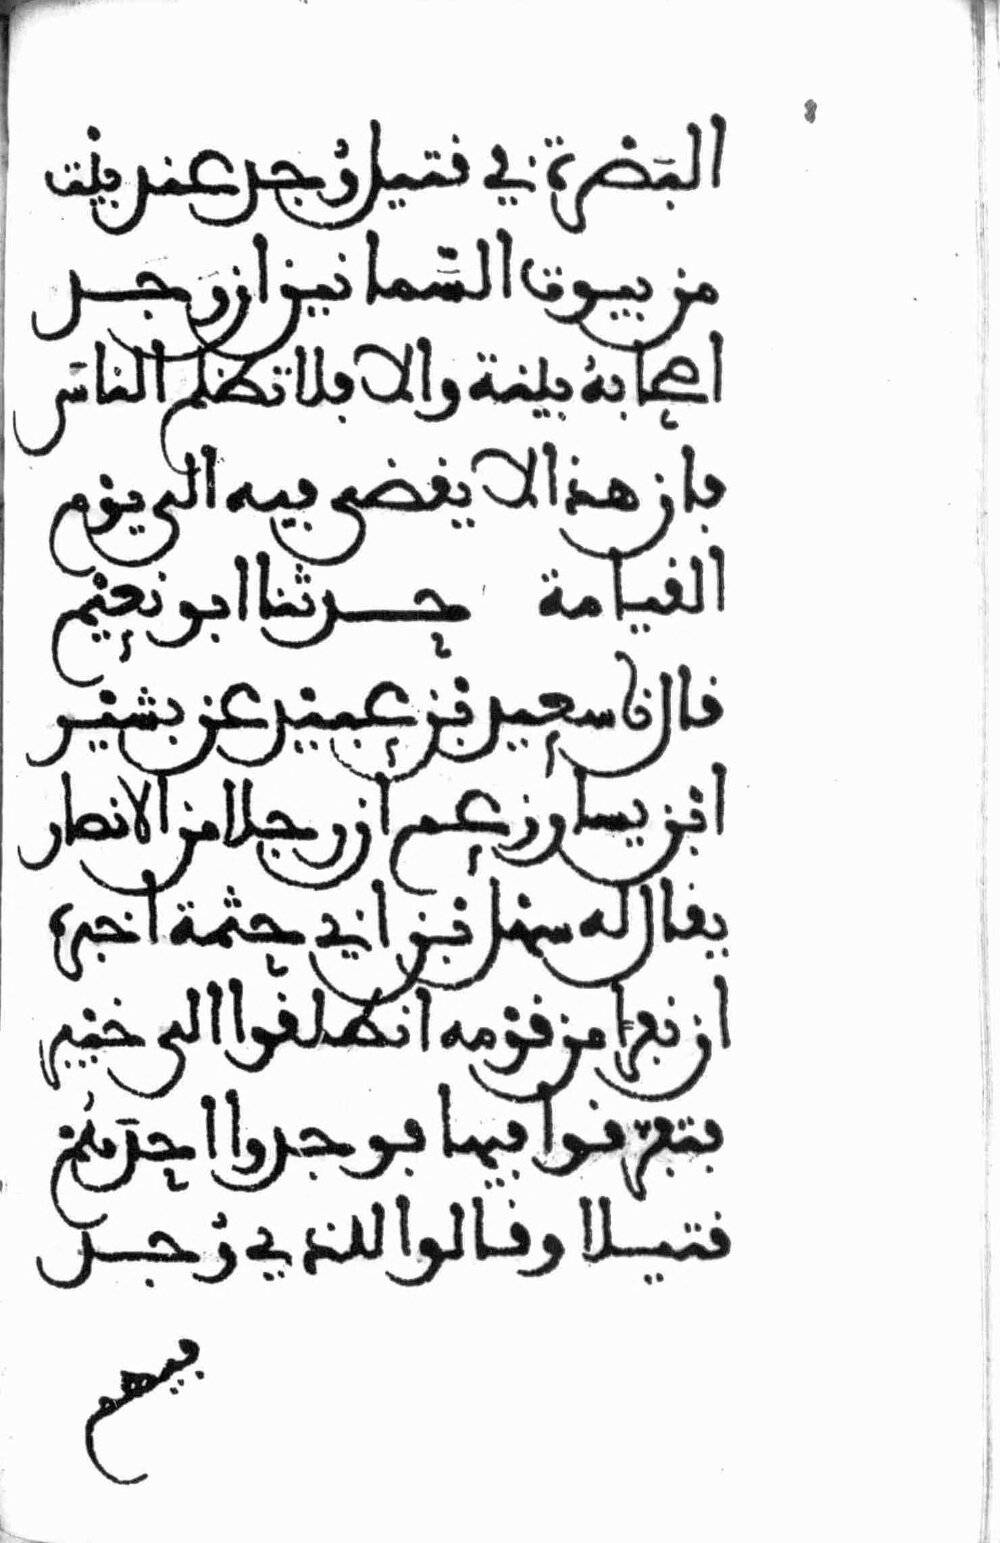 البَصْرة في قتيل وُجد عند بيْت
من بيوت السَّمانين ان وَجد
اصحابهُ بينة والا فلا تظلم الناسَ
فان هذا لا يقضى فيه الى يوْم
القيامة حدثنا ابو نعيْم
قال نا سعيد بْن عبيْد عن بشيْر
ابْن يسار زعم ان رجلا من الانصار
يقال له سهْل بْن ابي حثمة اخبره
ان نفرًا من قوْمه انطلقوا الى خيْبر
فتفرّقوا فيها فوجدوا احدَهُم
قتيلا وقالوا للذي وُجد
فيهم